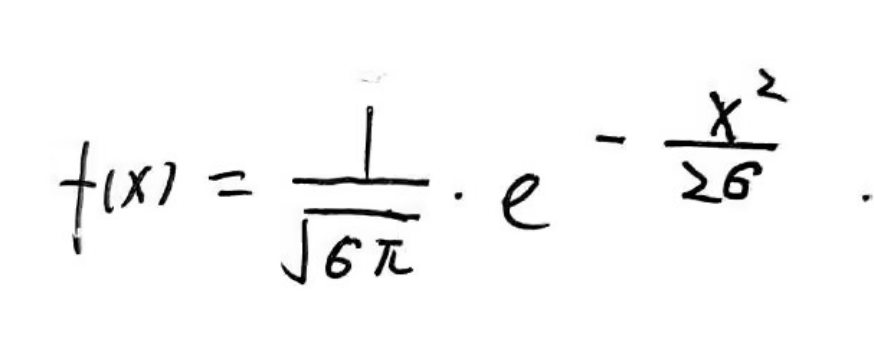 f(x) = \frac{1}{\sqrt{6\pi}} \cdot e^{-\frac{x^2}{26}}.